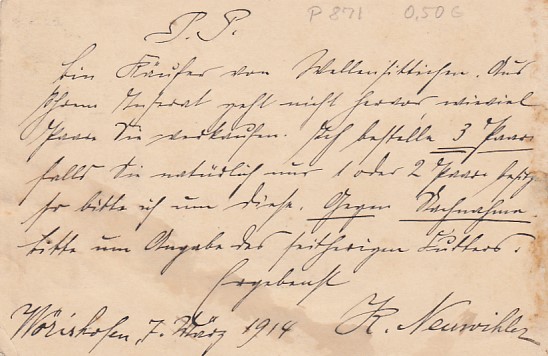 P 871 0,50 G
P. P.
Bin Käufer von Wellensittichen. Aus
Ihrem Inserat geht nicht hervor wieviel
Paare Sie verkaufen. Ich bestelle 3 Paare
falls Sie natürlich nur 1 oder 2 Paare
so bitte ich um diese. Gegen Nachnahme.
bitte um Angabe des seitherigen Futters.
Ergebenst
Wörishofen, 7. März 1914 K.